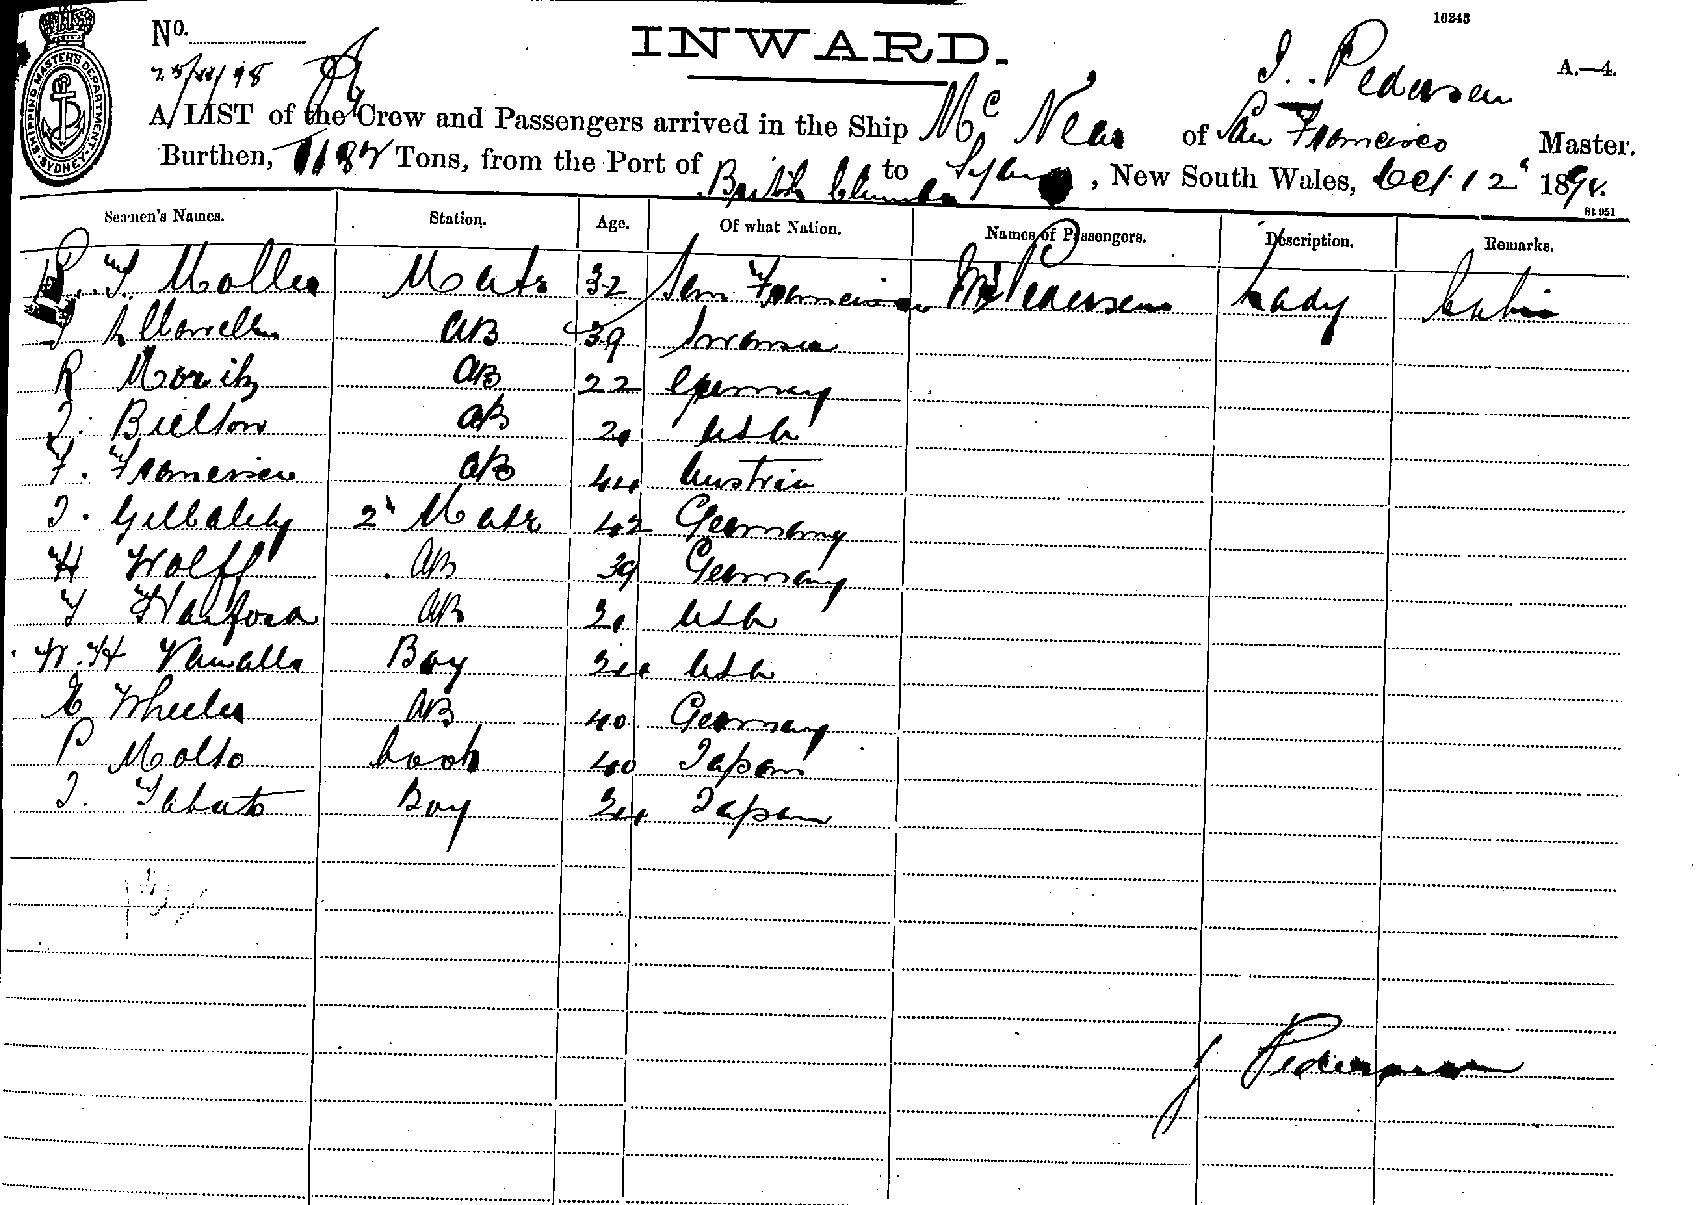 10243
No.
INWARD.
J. Pedersen
A.—4.
A LIST of the Crew and Passengers arrived in the Ship Mc Near of San Francisco Master.
Burthen, 1187 Tons, from the Port of British Columbia to Sydney, New South Wales, Oct 12 189
SHIPPING MASTER'S DEPARTMENT SYDNEY
Seamen's Names. Station. Age. Of what Nation. Names of Passengers. Description. Remarks.
Moller Mate 32 San Francisco Mrs Pedersen Lady Cabin
AB 39 Swansea
R Moritz AB 22 Germany
Bielton AB 2 USA
F. AB 44 Austria
2 Mate 42 Germany
H Wolff AB 39 Germany
AB 2 USA
W. H Boy USA
E Wheeler AB 40 Germany
P Molto Cook 40 Japan
Boy Japan
J Pedersen